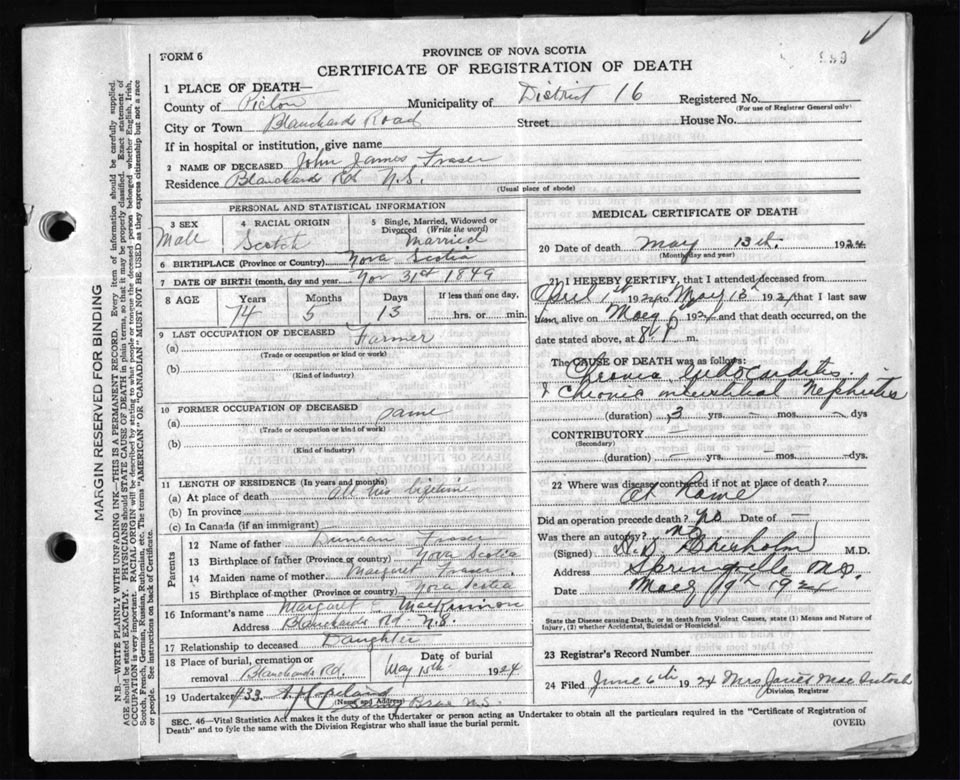 FORM 6
PROVINCE OF NOVA SCOTIA
CERTIFICATE OF REGISTRATION OF DEATH
1 PLACE OF DEATH—
County of Pictou Municipality of District 16 Registered No.
(For use of Registrar General only)
City or Town Blanchards Road Street House No.
If in hospital or institution, give name
2 NAME OF DECEASED John James Fraser
Residence Blanchards Rd N.S.
(Usual place of abode)
PERSONAL AND STATISTICAL INFORMATION
3 SEX Male
4 RACIAL ORIGIN Scotch
5 Single, Married, Widowed or Divorced (Write the word) Married
6 BIRTHPLACE (Province or Country) Nova Scotia
7 DATE OF BIRTH (month, day and year) Nov 31st 1849
8 AGE Years Months Days If less than one day,
74 5 13 hrs. or min.
9 LAST OCCUPATION OF DECEASED
(a) Farmer
(Trade or occupation or kind or work)
(b)
(Kind of industry)
10 FORMER OCCUPATION OF DECEASED
(a) same
(Trade or occupation or kind of work)
(b)
(Kind of industry)
11 LENGTH OF RESIDENCE (In years and months)
(a) At place of death all his lifetime
(b) In province
(c) In Canada (if an immigrant)
Parents
12 Name of father Duncan Fraser
13 Birthplace of father (Province or country) Nova Scotia
14 Maiden name of mother Margaret Fraser
15 Birthplace of mother (Province or country) Nova Scotia
16 Informant's name Margaret MacKinnon
Address Blanchards Rd. N.S.
17 Relationship to deceased Daughter
18 Place of burial, cremation or removal Blanchards Rd.
Date of burial
May 15th 1924
19 Undertaker Copeland
(Name and Address) N.S.
MEDICAL CERTIFICATE OF DEATH
20 Date of death May 13th 1924
(Month, day and year)
21 I HEREBY CERTIFY, that I attended deceased from
April 1st 1924 to May 13 1924 that I last saw
him alive on May 6 1924 and that death occurred, on the
date stated above, at 8 P m.
The CAUSE OF DEATH was as follows:
Chronic Endocarditis
& Chronic interstitial Nephritis
(duration) 3 yrs. – mos. – dys
CONTRIBUTORY
(Secondary)
(duration) – yrs. – mos. dys.
22 Where was disease contracted if not at place of death?
At Home
Did an operation precede death? no Date of —
Was there an autopsy? no
(Signed) Chisholm M.D.
Address Springville N.S.
Date May 1924
State the Disease causing Death, or in death from Violent Causes, state (1) Means and Nature of
Injury, (2) whether Accidental, Suicidal or Homicidal.
23 Registrar's Record Number
24 Filed June 6th 1924 Mrs James MacIntosh
Division Registrar
SEC. 46—Vital Statistics Act makes it the duty of the Undertaker or person acting as Undertaker to obtain all the particulars required in the "Certificate of Registration of
Death" and to fyle the same with the Division Registrar who shall issue the burial permit.
(OVER)
MARGIN RESERVED FOR BINDING
N.B.—WRITE PLAINLY WITH UNFADING INK—THIS IS A PERMANENT RECORD. Every item of information should be carefully supplied.
AGE should be stated EXACTLY. PHYSICIANS should STATE CAUSE OF DEATH in plain terms, so that it may be properly classified. Exact statement of
OCCUPATION is very important. RACIAL ORIGIN will be described by stating to what people or tongue the deceased person belonged whether English, Irish,
Scotch, French, German, Russian, Ruthenian, etc. The terms "AMERICAN" OR "CANADIAN" MUST NOT BE USED as they express citizenship but not a race
or people. See instructions on back of Certificate.